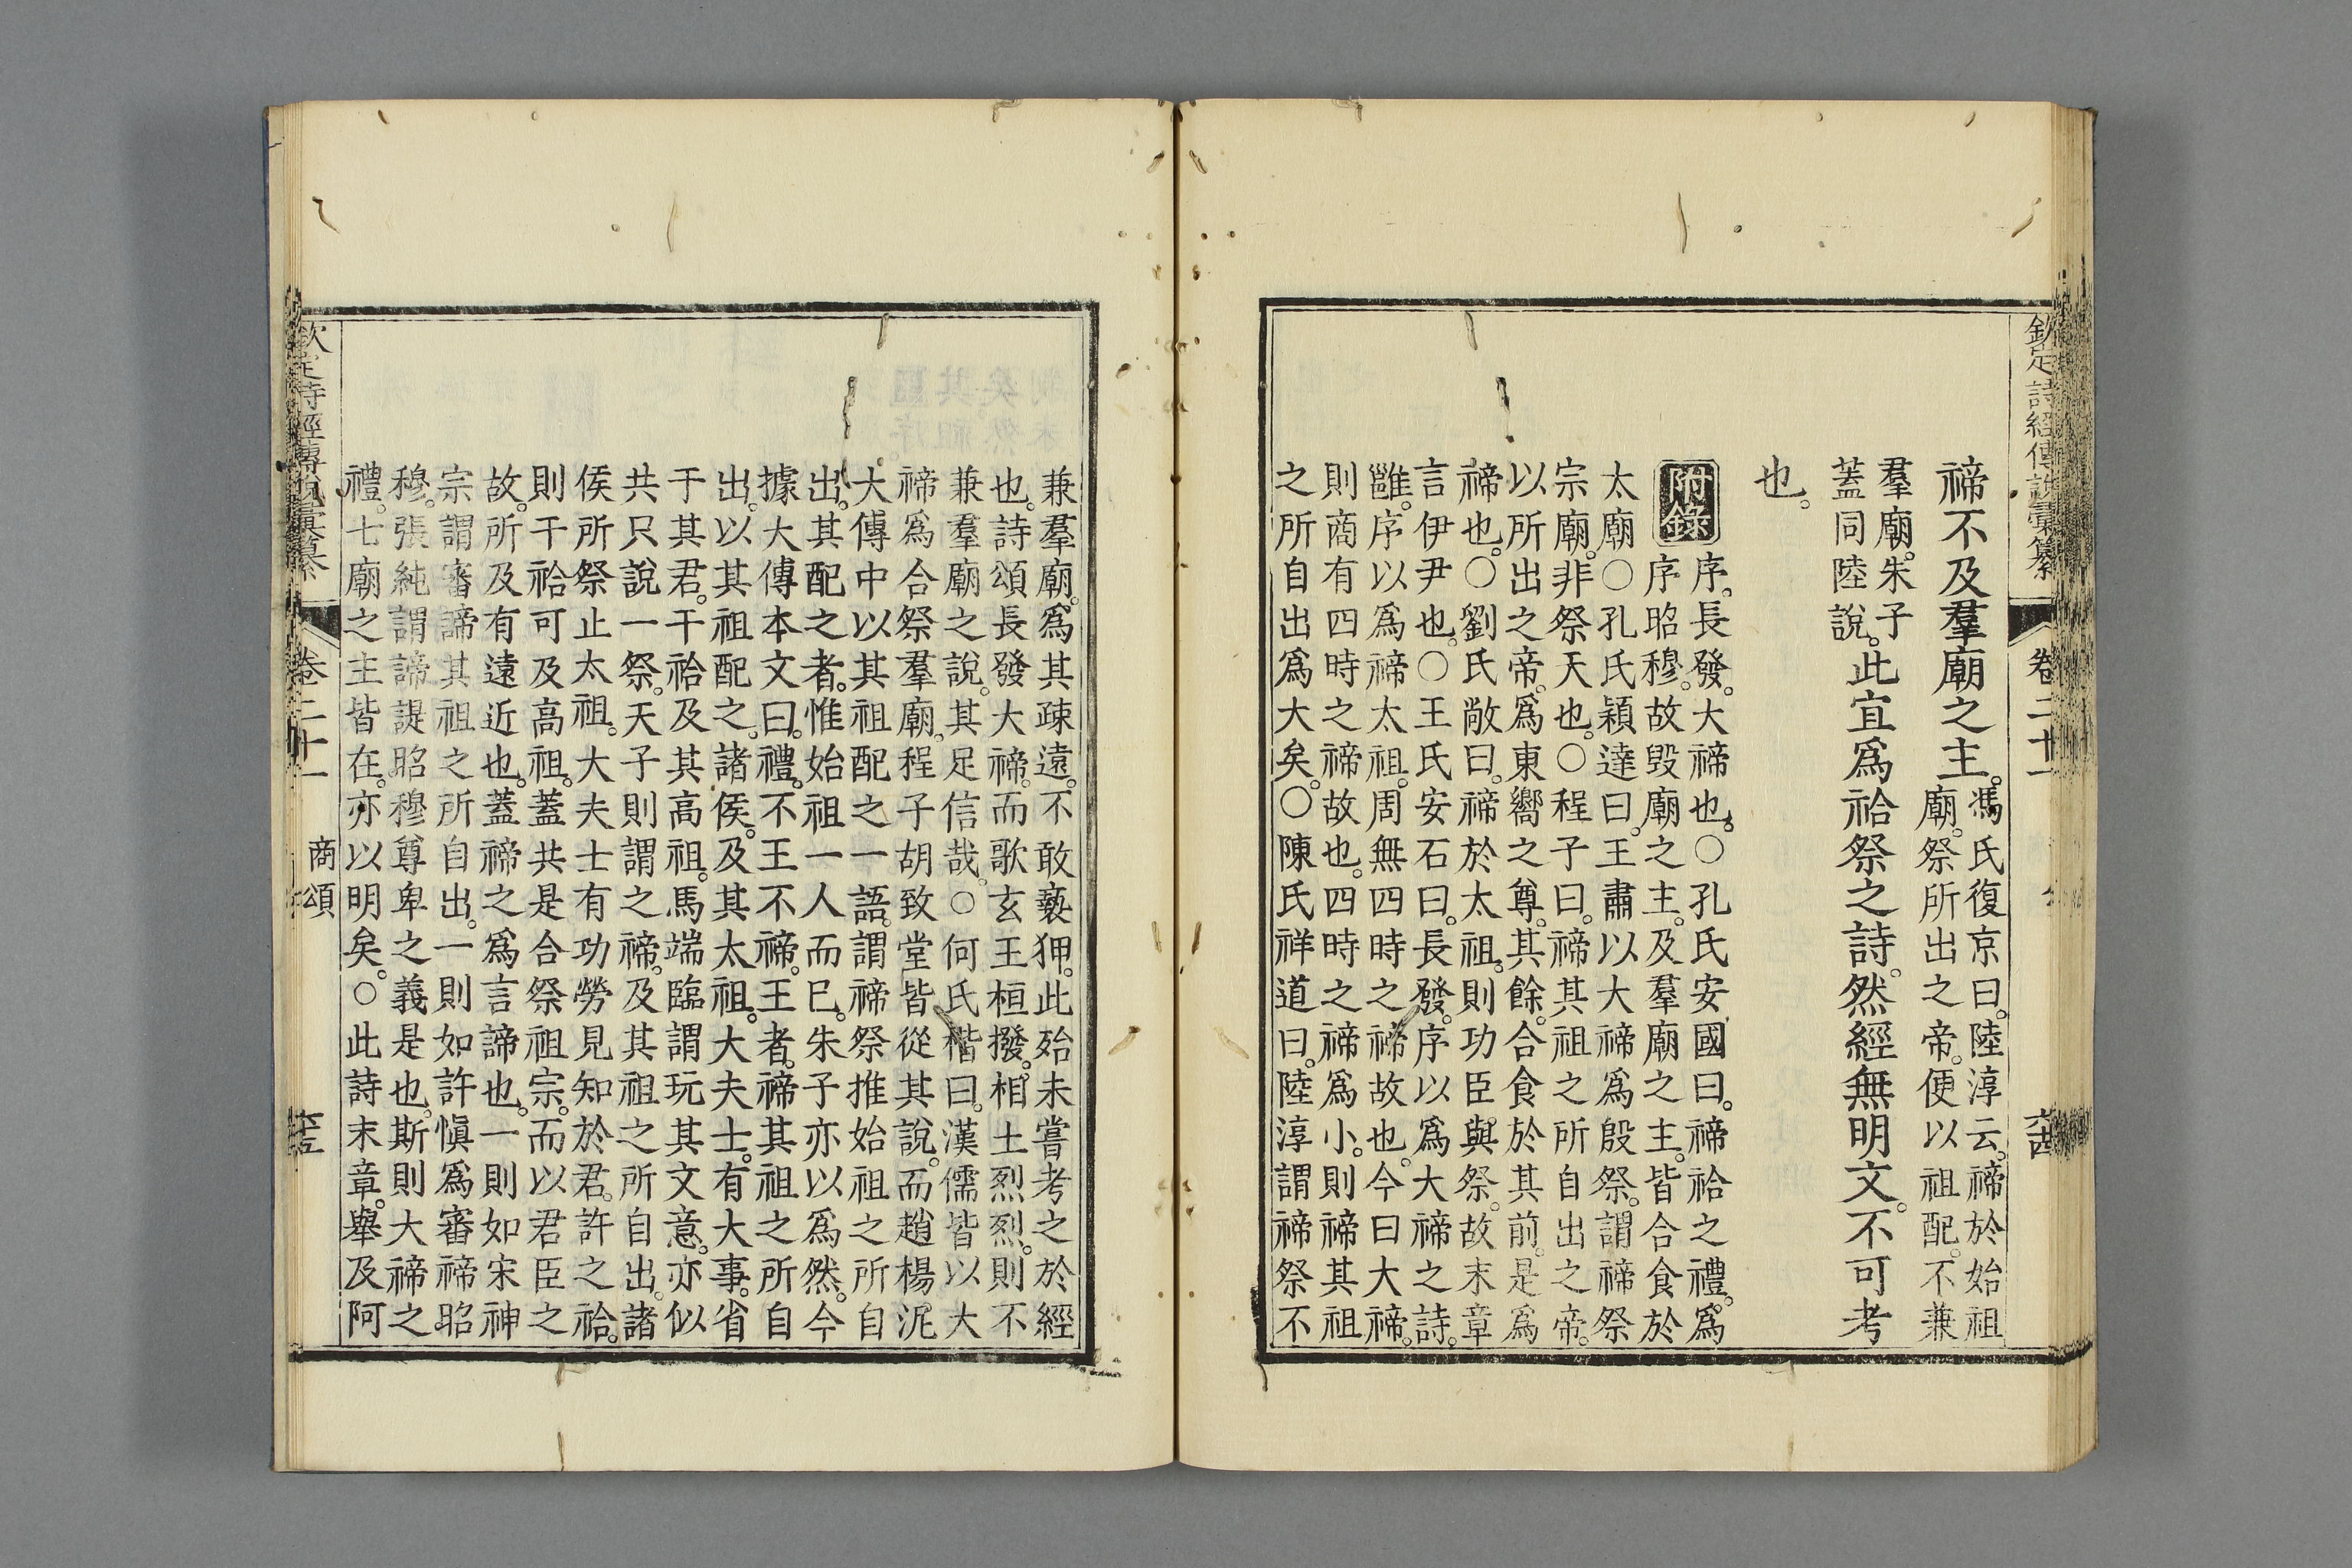 欽定詩經傳說彙纂 卷二十一 六十四
禘不及羣廟之主。馮氏復京曰。陸淳云。禘於始祖
廟。祭所出之帝。便以祖配。不兼
羣廟。朱子
蓋同陸說。此宜爲祫祭之詩。然經無明文。不可考
也。
附錄 序。長發。大禘也。○孔氏安國曰。禘祫之禮。爲
序昭穆。故毀廟之主。及羣廟之主。皆合食於
太廟○孔氏穎達曰。王肅以大禘爲殷祭。謂禘祭
宗廟。非祭天也。○程子曰。禘其祖之所自出之帝。
以所出之帝。爲東嚮之尊。其餘。合食於其前。是爲
禘也。○劉氏敞曰。禘於太祖。則功臣與祭。故末章
言伊尹也。○王氏安石曰。長發。序以爲大禘之詩。
雝。序以爲禘太祖。周無四時之禘故也。今曰大禘。
則商有四時之禘故也。四時之禘爲小。則禘其祖
之所自出爲大矣。○陳氏祥道曰。陸淳謂禘祭不
兼羣廟。爲其疎遠。不敢褻狎。此殆未嘗考之於經
也。詩頌長發大禘。而歌玄王桓撥。相土烈烈。則不
兼羣廟之說。其足信哉。○何氏楷曰。漢儒皆以大
禘爲合祭羣廟。程子胡致堂皆從其說。而趙楊泥
大傳中以其祖配之一語。謂禘祭推始祖之所自
出。其配之者。惟始祖一人而已。朱子亦以爲然。今
據大傳本文曰。禮。不王不禘。王者。禘其祖之所自
出。以其祖配之。諸侯。及其太祖。大夫士。有大事。省
于其君。干祫及其高祖。馬端臨謂玩其文意。亦似
共只說一祭。天子則謂之禘。及其祖之所自出。諸
侯所祭止太祖。大夫士有功勞見知於君。許之祫。
則干祫可及高祖。蓋共是合祭祖宗。而以君臣之
故。所及有遠近也。蓋禘之爲言諦也。一則如宋神
宗謂審諦其祖之所自出。一則如許愼爲審禘昭
穆。張純謂諦諟昭穆尊卑之義是也。斯則大禘之
禮。七廟之主皆在。亦以明矣。○此詩末章。舉及阿
欽定詩經傳說彙纂 卷二十一 商頌 六十五